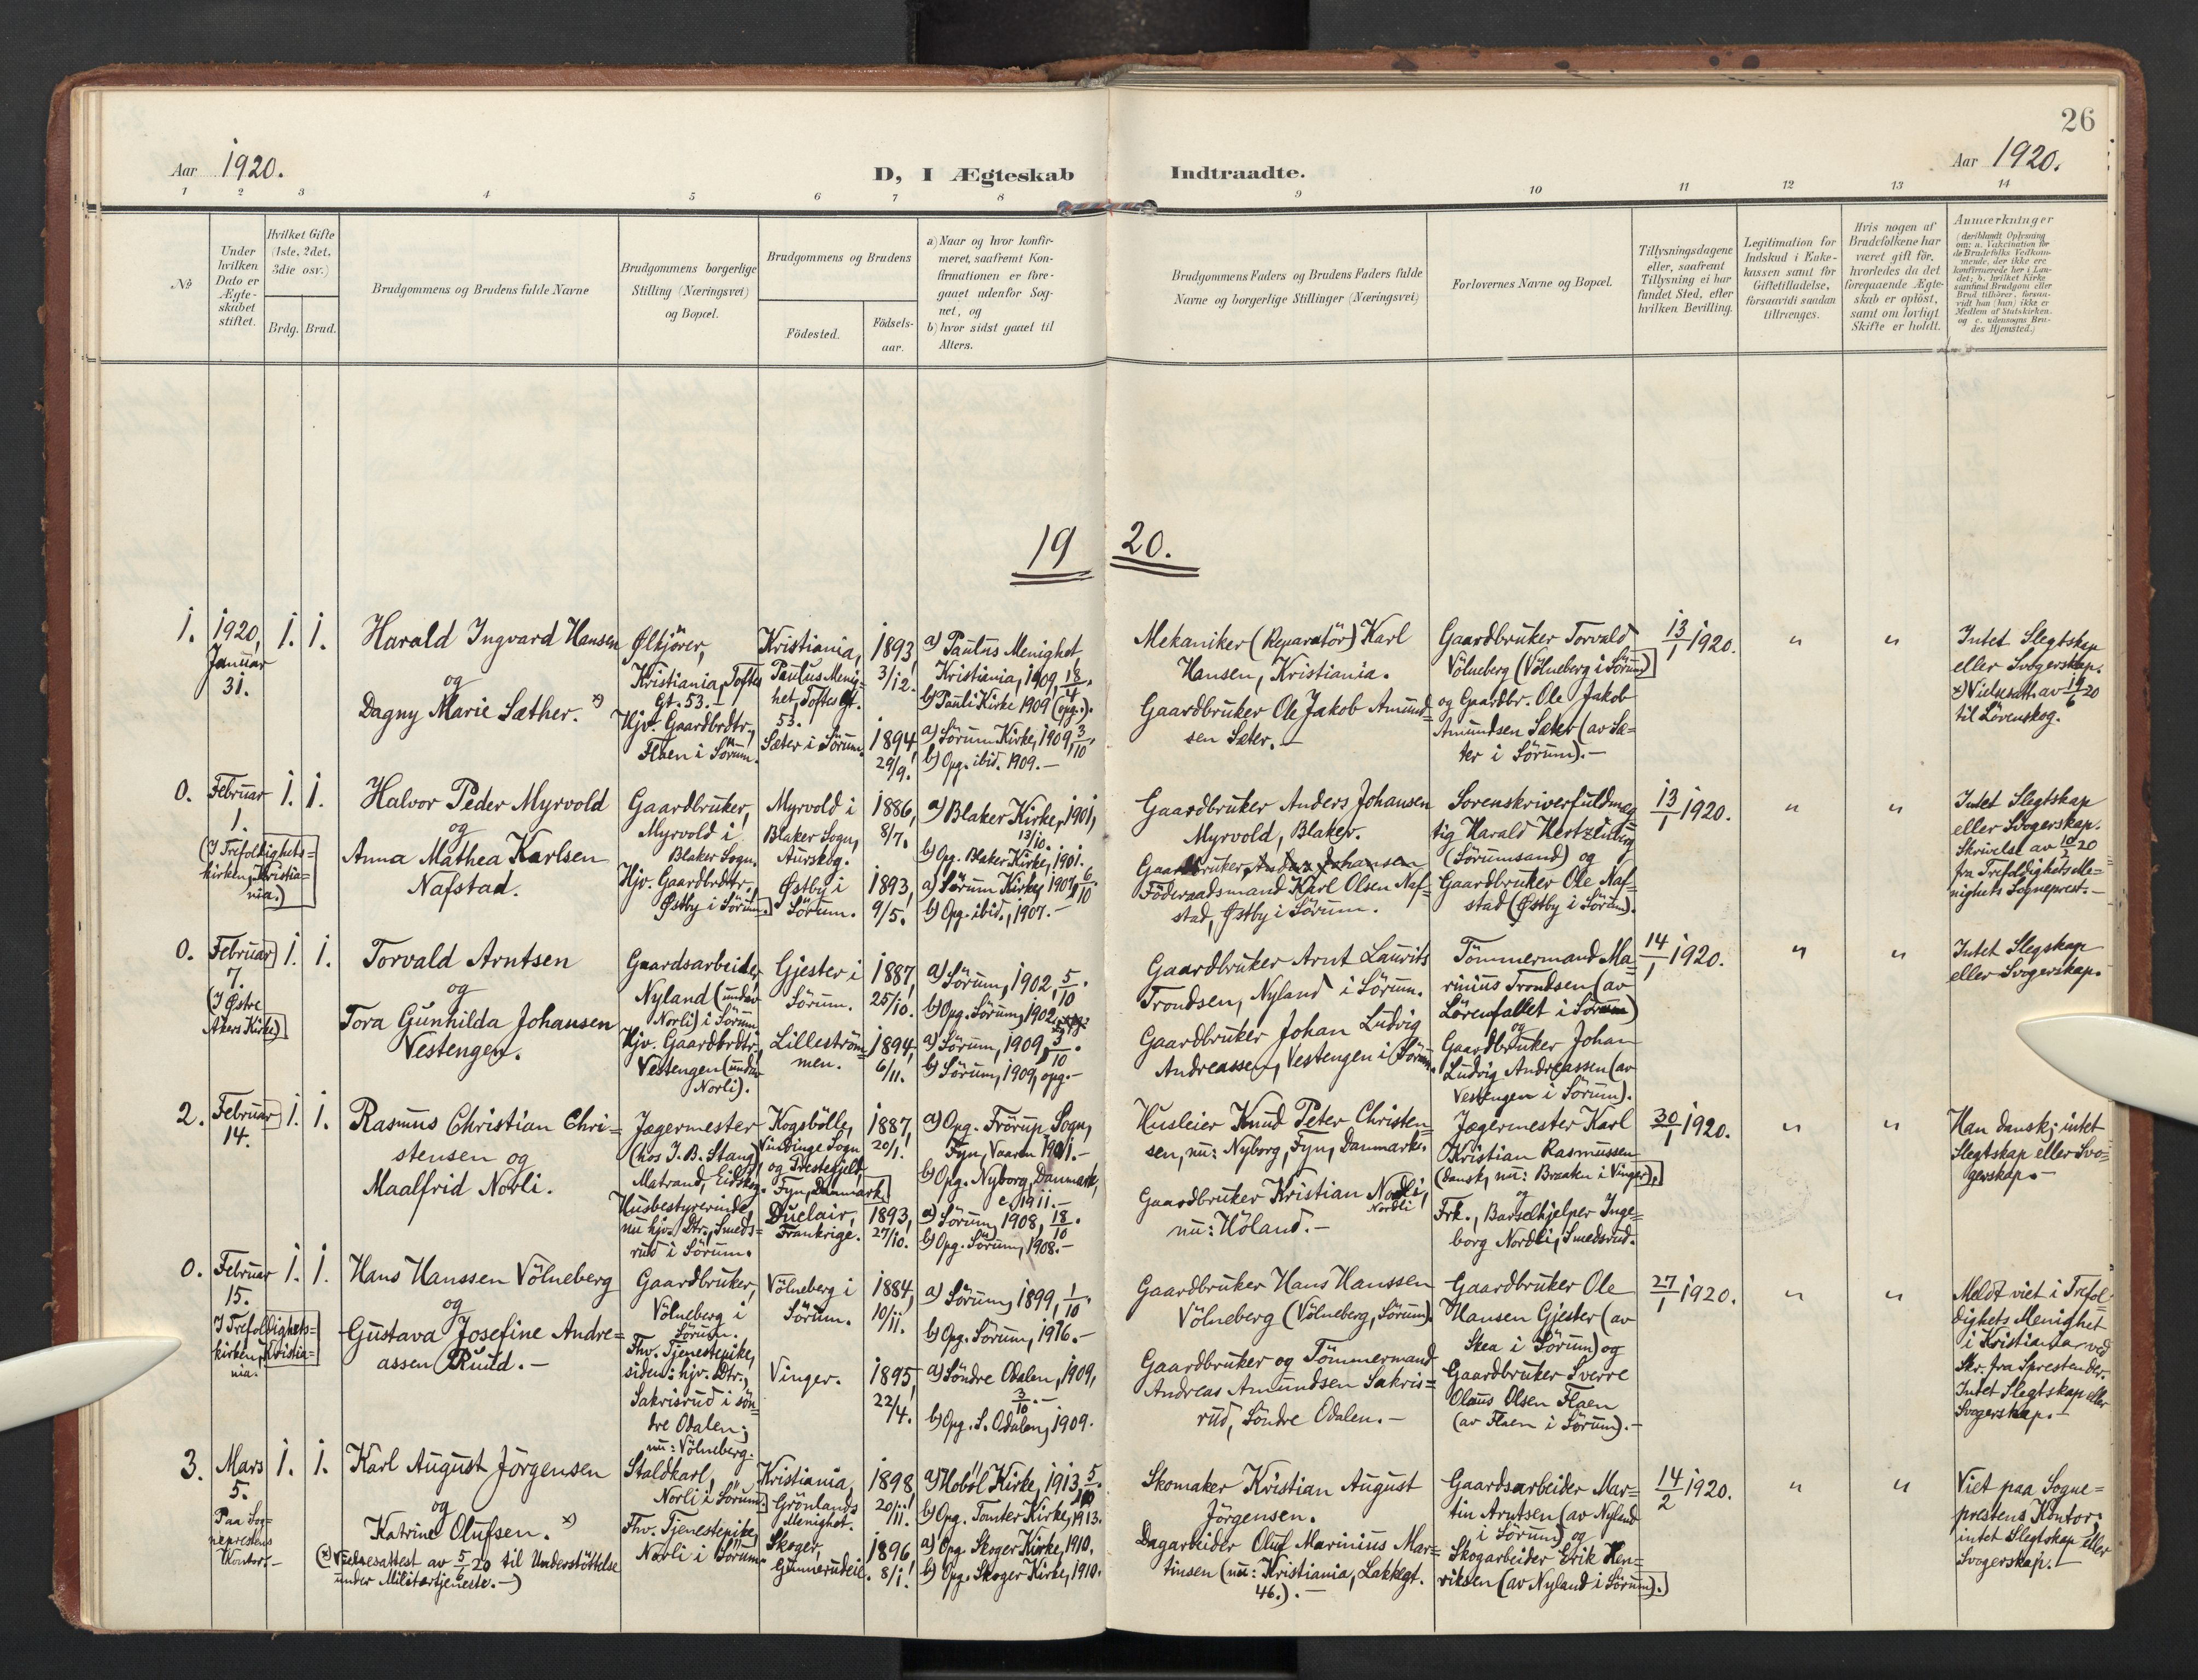 26
Aar 1920.
D, I Ægteskab Indtraadte.
Aar 1920.
1 2 3 4 5 6 7 8 9 10 11 12 13 14
No
Under
hvilken
Dato er
Ægte-
skabet
stiftet.
Hvilket Gifte
(1ste, 2det,
3die osv.)
Brdg. Brud.
Brudgommens og Brudens fulde Navne
Brudgommens borgerlige
Stilling (Næringsvei)
og Bopæl.
Brudgommens og Brudens
Födested.
Födsels-
aar.
a) Naar og hvor konfir-
meret, saafremt Kon-
firmationen er fore-
gaaet udenfor Sog-
net, og
b) hvor sidst gaaet til
Alters.
Brudgommens Faders og Brudens Faders fulde
Navne og borgerlige Stillinger (Næringsvei)
Forlovernes Navne og Bopæl.
Tillysningsdagene
eller, saafremt
Tillysning ei har
fundet Sted, efter
hvilken Bevilling.
Legitimation for
Indskud i Enke-
kassen samt for
Giftetilladelse,
forsaavidt saadan
tiltrænges.
Hvis nogen af
Brudefolkene har
været gift för,
hvorledes da det
foregaaende Ægte-
skab er oplöst,
samt om lovligt
Skifte er holdt.
Anmærkninger
(deriblandt Oplysning
om: a. Vakcination for
de Brudefolks Vedkom-
mende, der ikke ere
konfirmerede her i Lan-
det; b. hvilket Kirke-
samfund Brudgom eller
Brud tilhörer, forsaa-
vidt han (hun) ikke er
Medlem af Statskirken.
og c. udensogns Bru-
des Hjemsted.)
19 20.
1.
1920,
Januar
31.
1. 1.
Harald Ingvard Hansen
og
Dagny Marie Sæther. x)
Ølkjører,
Kristiania, Toftes
Gt. 53. -
Hjv. Gaardbrdtr.,
Flaen i Sörum.
Kristiania,
Paulus Menig-
het, Toftes Gt.
53.
Sæter i Sörum.
1893,
3/12.
1894,
29/9.
a) Paulus Menighet
Kristiania, 1909, 18/4.
b) Pauli Kirke 1909 (opg.).
a) Sörum Kirke, 1909, 3/10.
b) Opg. ibid. 1909. -
Mekaniker (Reparatör) Karl
Hansen, Kristiania.
Gaardbruker Ole Jakob Amund=
sen Sæter. -
Gaardbruker Torvald
Völneberg (Völneberg i Sörum)
og Gaardbr. Ole Jakob
Amundsen Sæter (av Sæ=
ter i Sörum). -
13/1 1920.
" "
Intet Slegtskap
eller Svogerskap.
x) Vielsesatt. av 19/6 20
til Lörenskog.
0.
Februar
1.
(I Trefoldighets=
kirken, Kristia=
nia.)
1. 1.
Halvor Peder Myrvold
og
Anna Mathea Karlsen
Nafstad.
Gaardbruker,
Myrvold i
Blaker Sogn.
Hjv. Gaardbrdtr.,
Østby i Sörum.
Myrvold i
Blaker Sogn,
Aurskog.
Østby i
Sörum.
1886,
8/7.
1893,
9/5.
a) Blaker Kirke, 1901,
13/10.
b) Opg. Blaker Kirke, 1901.
a) Sörum Kirke, 1907, 6/10.
b) Opg. ibid., 1907. -
Gaardbruker Anders Johansen
Myrvold, Blaker.
Gaardbruker Anders Johansen
Föderaadsmand Karl Olsen Naf=
stad, Østby i Sörum.
Sorenskriverfuldmæg
tig Harald Hertzenberg
(Sörumsand) og
Gaardbruker Ole Naf=
stad (Østby i Sörum).
13/1 1920.
" "
Intet Slegtskap
eller Svogerskap.
Skrivelse av 10/2 20
fra Trefoldighets Me=
nighets Sogneprest. -
0.
Februar
7.
(I Østre
Akers Kirke)
1. 1.
Torvald Arntsen
og
Tora Gunhilda Johansen
Vestengen.
Gaardsarbeider,
Nyland (under
Norli) i Sörum.
Hjv. Gaardbrdtr.,
Vestengen (under
Norli).
Gjester i
Sörum.
Lilleström=
men.
1887,
25/10.
1894,
6/11.
a) Sörum, 1902, 5/10.
b) Opg. Sörum, 1902.
a) Sörum, 1909, 3/10.
b) Sörum, 1909, opg. -
Gaardbruker Arnt Laurits
Trondsen, Nyland i Sörum.
Gaardbruker Johan Ludvig
Andreassen, Vestengen i Sörum.
Tömmermand Ma=
rinius Trondsen (av
Lörenfallet i Sörum)
og
Gaardbruker Johan
Ludvig Andreassen (av
Vestengen i Sörum).
14/1 1920.
" "
Intet Slegskap
eller Svogerskap.
2.
Februar
14.
1. 1.
Rasmus Christian Chri=
stensen og
Maalfrid Norli.
Jægermester
(hos J. B. Stang)
Matrand, Eidskog.
Husbestyrerinde,
nu hjv. Dtr., Smeds=
rud i Sörum.
Kogsbölle,
Vindinge Sogn
og Prestegjeld,
Fyn, Danmark.
Duclair,
Frankrige.
1887,
20/1.
1893,
27/10.
a) Opg. Frörup Sogn,
Fyn, Vaaren 1901. -
b) Opg. Nyborg, Danmark,
c. 1911. -
a) Sörum, 1908, 18/10.
b) Opg. Sörum, 1908. -
Husleier Knud Peter Christen=
sen, nu: Nyborg, Fyn, Danmark.
Gaardbruker Kristian Nordli,
Nordli
nu: Höland. -
Jægermester Karl
Kristian Rasmussen
(dansk, nu: Braaken i Vinger),
og
Frk., Barselhjelper Inge=
borg Nordli, Smedsrud.
30/1 1920.
" "
Han dansk; intet
Slegtskap eller Svo=
gerskap. -
0.
Februar
15.
I Trefoldighets=
kirken, Kristia=
nia.
1. 1.
Hans Hanssen Völneberg
og
Gustava Josefine Andre=
assen Ruud. -
Gaardbruker,
Völneberg i
Sörum.
Fhv. Tjenestepike,
siden: hjv. Dtr.,
Sakrisrud i sön=
dre Odalen;
nu: Völneberg.
Völneberg i
Sörum.
Vinger.
1884,
10/11.
1895,
22/4.
a) Sörum, 1899, 1/10.
b) Opg. Sörum, 1916. -
a) Söndre Odalen, 1909,
3/10. -
b) Opg. S. Odalen, 1909.
Gaardbruker Hans Hanssen
Völneberg (Völneberg, Sörum).
Gaardbruker og Tömmermand
Andreas Amundsen Sakris=
rud, Söndre Odalen. -
Gaardbruker Ole
Hansen Gjester (av
Skea i Sörum) og
Gaardbruker Sverre
Olaus Olsen Flaen
(av Flaen i Sörum). -
27/1 1920.
" "
Meldt viet i Trefol=
dighets Menighet
i Kristiania ved
Skr. fra Sprestender.
Intet Slegtskap eller
Svogerskap. -
3.
Mars
5.
Paa Sog=
neprestens
Kontor. -
1. 1.
Karl August Jörgensen
og
Katrine Olufsen. x)
(x) Vielsesattest av 5/6 20 til Understöttelse
under Militærtjeneste. -)
Staldkarl,
Norli i Sörum.
Fhv. Tjenestepike,
Norli i Sörum.
Kristiania,
Grönlands
Menighet.
Skoger,
Gunnerudeie.
1898,
20/11.
1896,
8/1.
a) Hobøl Kirke, 1913, 5/10
b) Opg. Tomter Kirke, 1913.
a) Opg. Skoger Kirke, 1910.
b) Opg. Skoger Kirke, 1910.
Skomaker Kristian August
Jörgensen.
Dagarbeider Oluf Marinius Mar=
tinsen (nu: Kristiania, Lakkegt.
46.). -
Gaardsarbeider Mar=
tin Arntsen (av Nyland
i Sörum) og
Skogarbeider Erik Hen=
riksen (av Nyland i Sörum).
14/2 1920.
" "
Viet paa Sogne=
prestens Kontor;
intet Slegtskap eller
Svogerskap. -